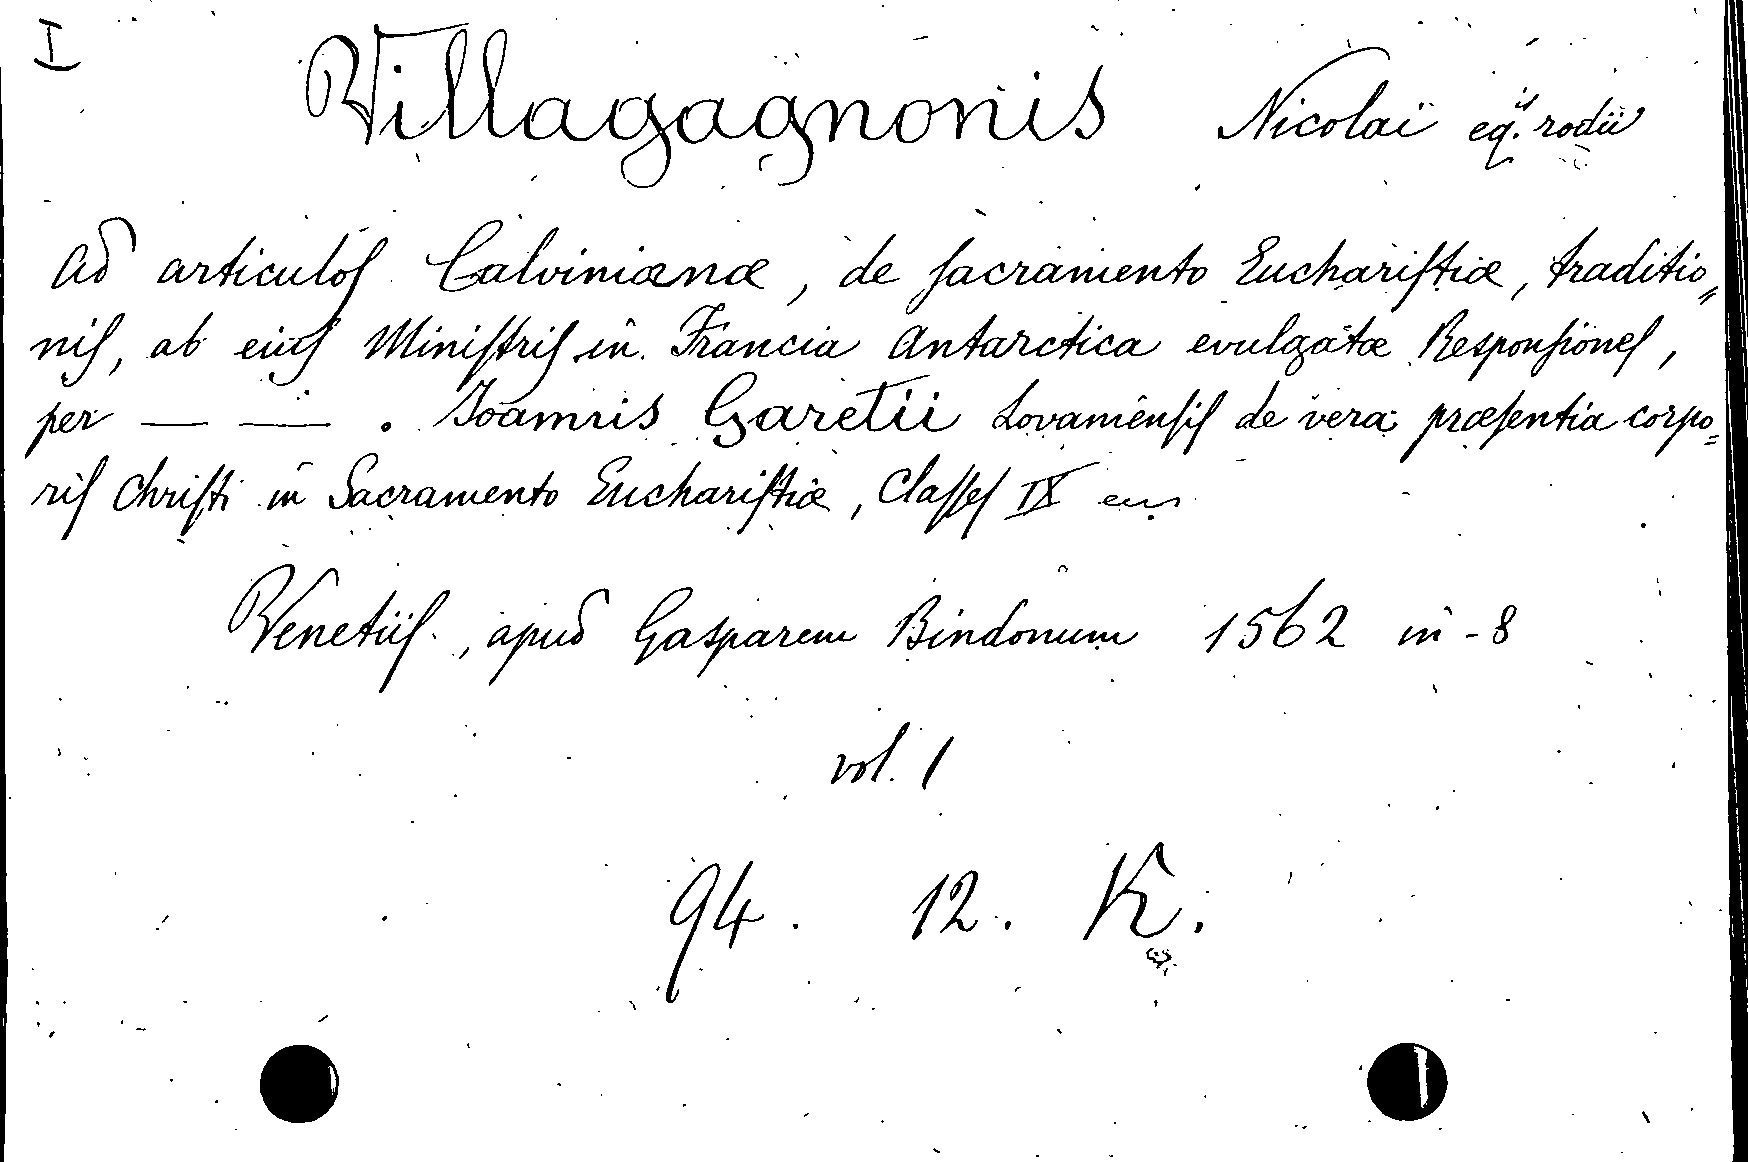 I
Villagagnonis Nicolai eq.is rodii
Ad articulos Calvinianæ, de sacramento Euchariſtiæ, traditio„
niſ, ab eiuſ Miniſtriſ in Francia Antarctica evulgatæ Responſioneſ,
per — — . Joannis Garetii Lovanienſiſ de vera præſentia corpo=
riſ Chriſti in Sacramento Euchariſtiæ, Claſſeſ IX
Venetiiſ, apud Gasparem Bindonum 1562 in-8
vol. 1
94. 12. K.